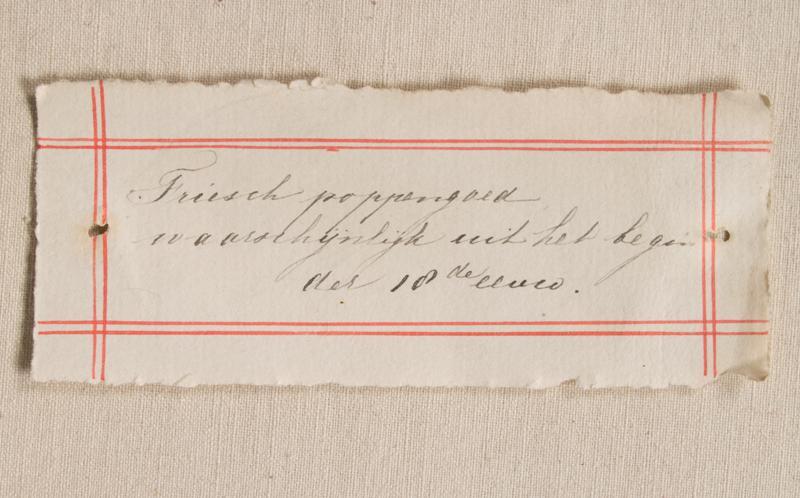 Friesch poppengoed
waarschijnlijk uit het begin
der 18de eeuw.